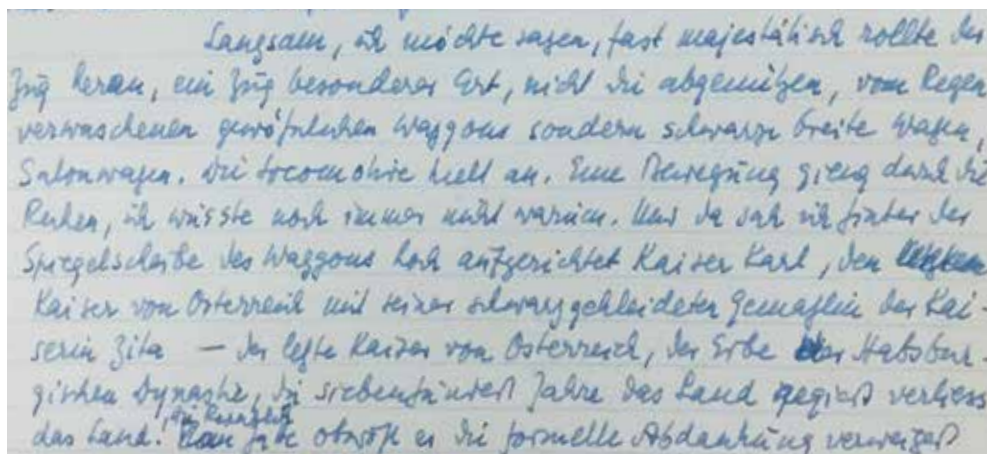 Langsam, ich möchte sagen, fast majestätisch rollte der
Zug heran, ein Zug besonderer Art, nicht die abgenützen, vom Regen
verwaschenen gewöhnlichen Waggons sondern schwarze breite Wagen,
Salonwagen. Die Locomotive hielt an. Eine Bewegung gieng durch die
Reihen, ich wusste noch immer nicht warum. Und da sah ich hinter der
Spiegelscheibe des Waggons hoch aufgerichtet Kaiser Karl, den letzten
Kaiser von Österreich mit seiner schwarzgekleideten Gemahlin der Kai-
serin Zita — der letzte Kaiser von Österreich, der Erbe der Habsbur-
gischen Dynastie, die siebenhundert Jahre das Land regiert verliess
die Republik
das Land. habe obwohl er die formelle Abdankung verweigert